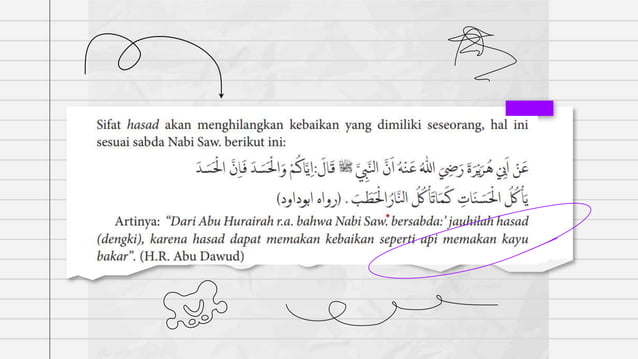 Sifat hasad akan menghilangkan kebaikan yang dimiliki seseorang, hal ini
sesuai sabda Nabi Saw. berikut ini:
عَنْ أَبِيْ هُرَيْرَةَ رَضِيَ اللهُ عَنْهُ أَنَّ النَّبِيَّ ﷺ قَالَ:اِيَّاكُمْ وَالْحَسَدَ فَاِنَّ الْحَسَدَ
يَأْكُلُ الْحَسَنَاتِ كَمَاتَأْكُلُ النَّارُالْحَطَبَ . (رواه ابوداود)
Artinya: “Dari Abu Hurairah r.a. bahwa Nabi Saw. bersabda:’ jauhilah hasad
(dengki), karena hasad dapat memakan kebaikan seperti api memakan kayu
bakar”. (H.R. Abu Dawud)